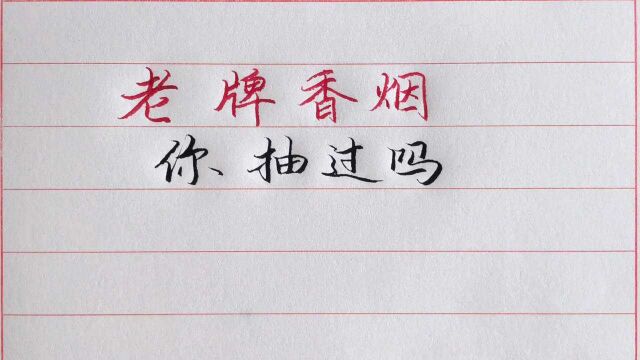 老牌香烟
你抽过吗